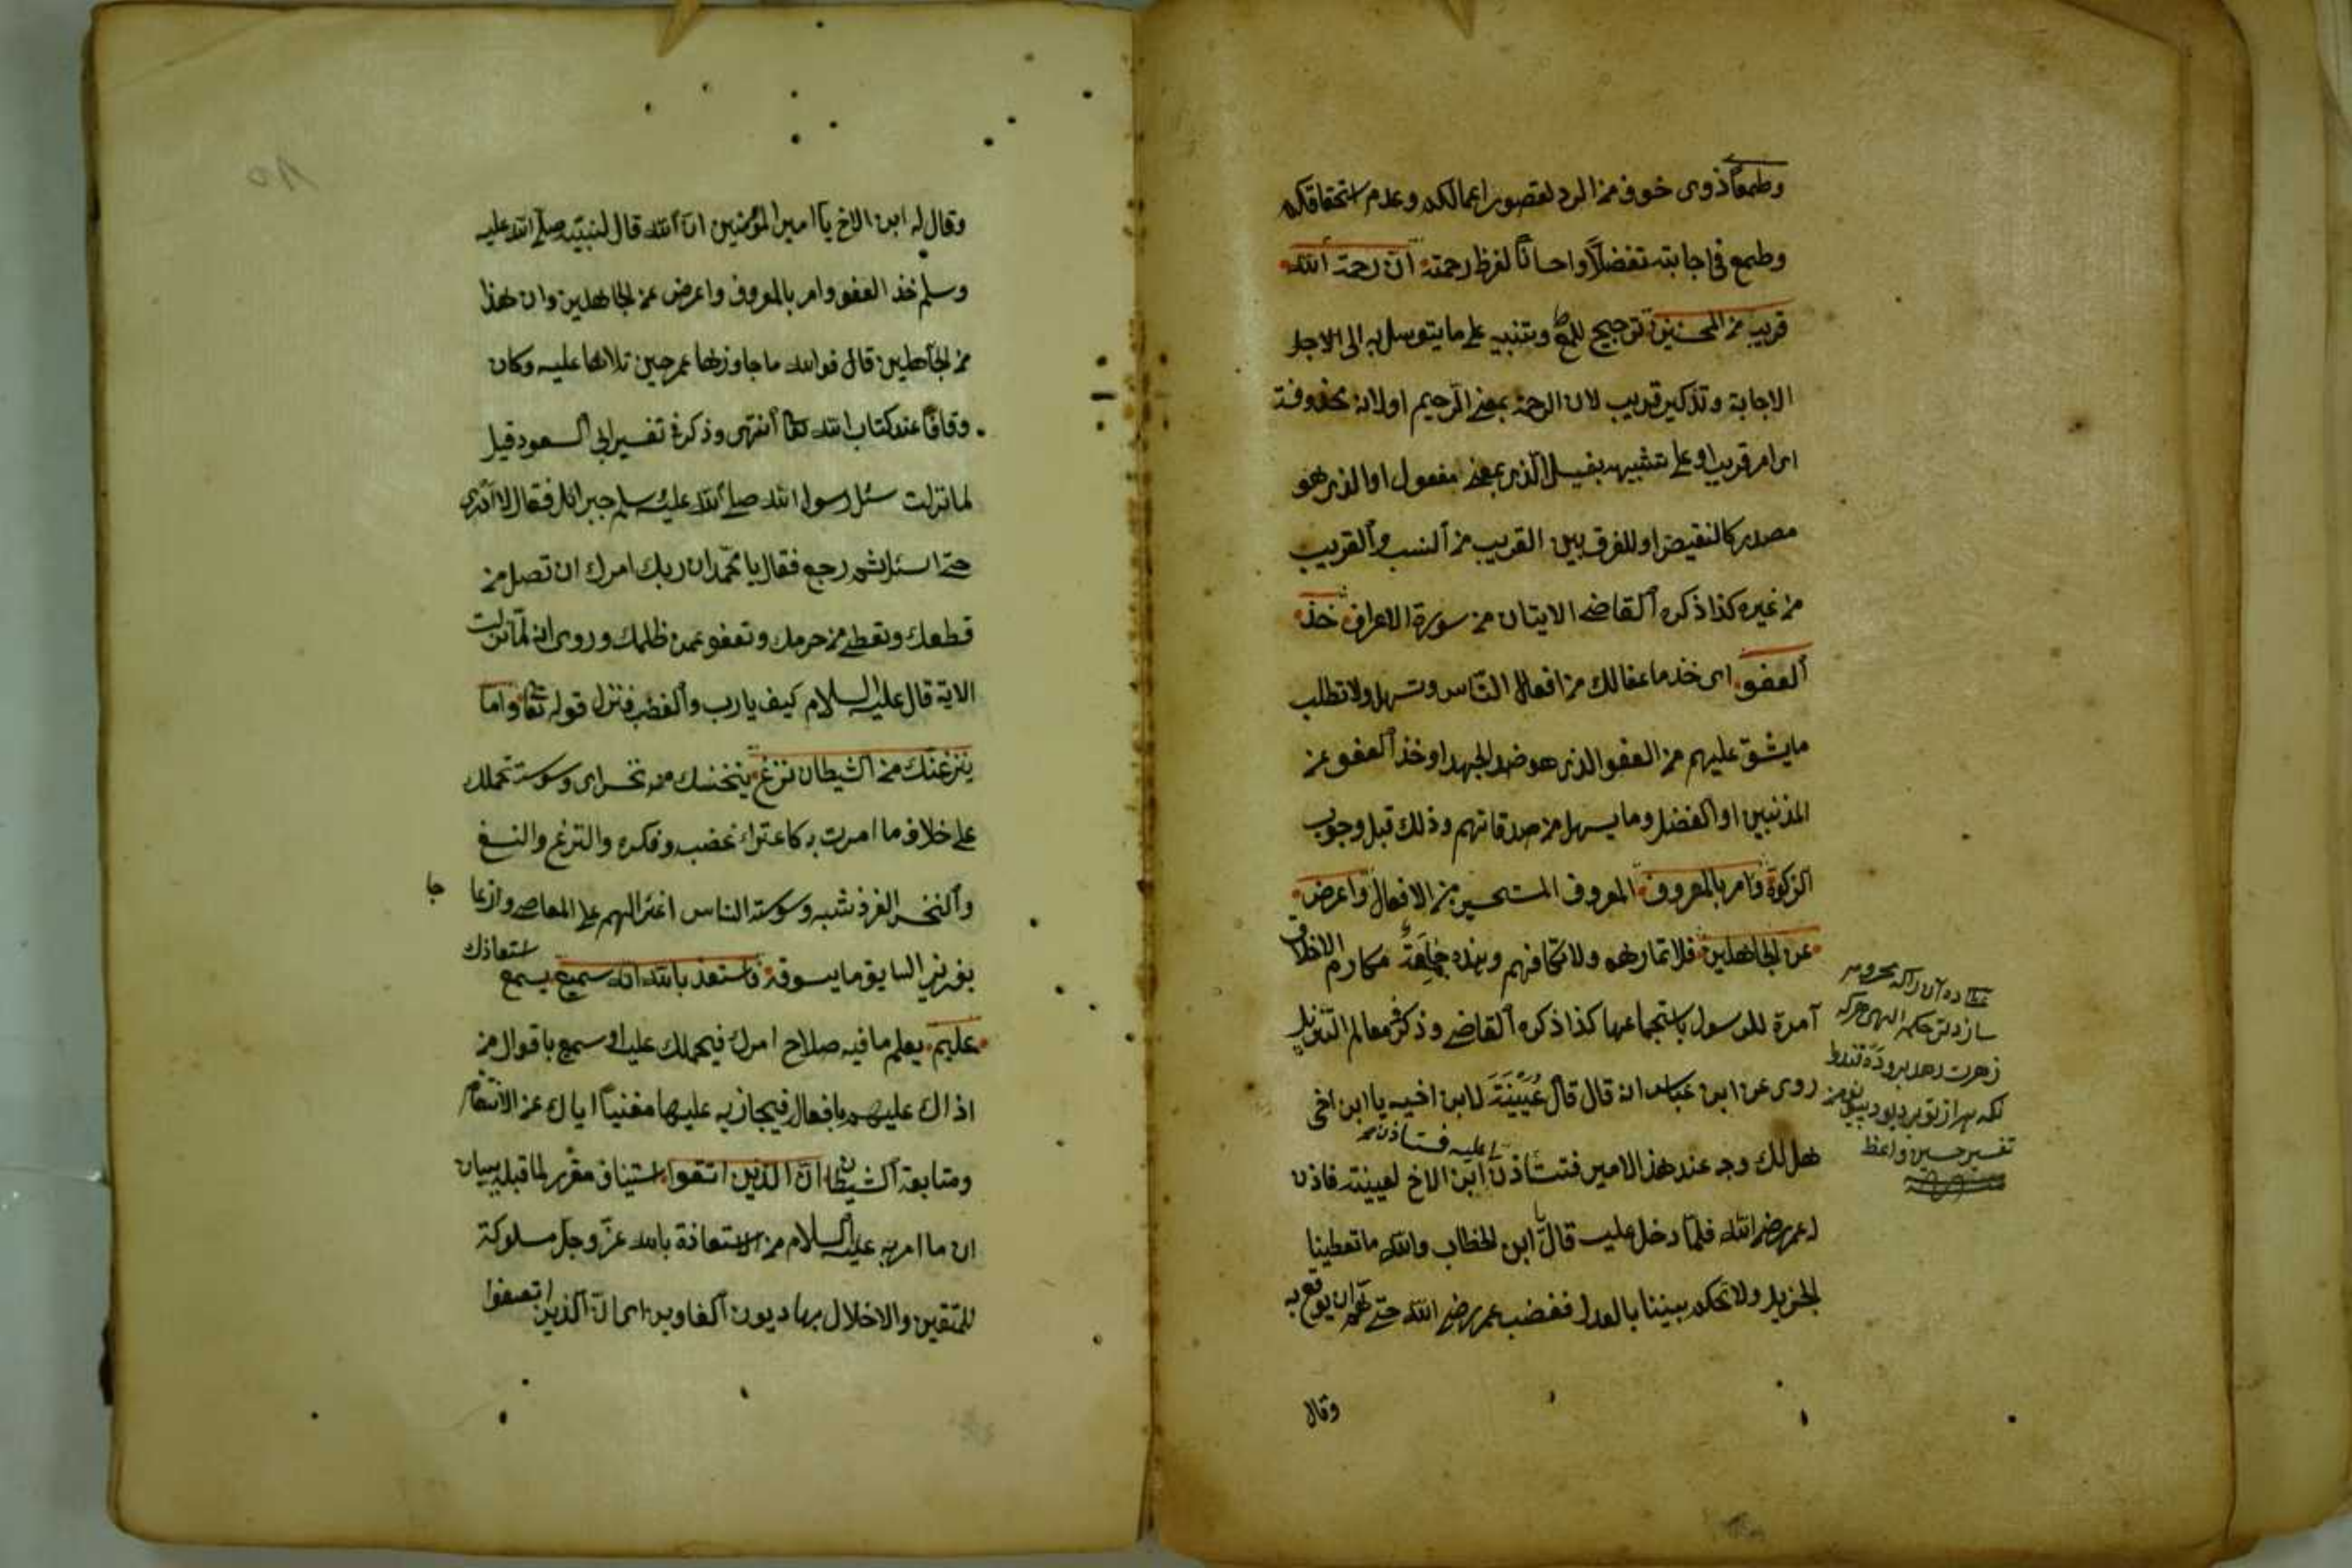 وطمعا ذوى خوف من الرد لقصور اعمالكم وعدم استحقاقكم
وطمع فى اجابته تفضلا واحسانا لفرط رحمته ان رحمة الله
قريب من المحسنين ترجيح للطمع وتنبيه على ما يتوسل به الى الاجل
الاجابة وتذكير قريب لان الرحمة بمعنى الرحيم او لانه محذوفة
اى امر قريب او على تشبيهه بفعيل الذى بمعنى مفعول او الذى هو
مصدر كالنقيض او للفرق بين القريب من النسب والقريب
من غيره كذا ذكره القاضى الايتان من سورة الاعراف خذ
العفو اى خذ ما عفا لك من افعال الناس وتسهل ولا تطلب
ما يشق عليهم من العفو الذى هو ضد الجهد او خذ العفو عن
المذنبين او الفضل وما يسهل من صدقاتهم وذلك قبل وجوب
الزكوة وامر بالمعروف المعروف المستحسن من الافعال واعرض
عن الجاهلين فلا تمارهم ولا تكافهم وهذه جامعة مكارم الاخلاق
آمرة للرسول باستجماعها كذا ذكره القاضى وذكر فى معالم التنزيل
روى عن ابن عباس انه قال قال عيينة لابن اخيه يا ابن اخى
هل لك وجه عند هذا الامير فتستأذن لى عليه فاستأذن ابن الاخ لعيينة فاذن
له عمر رضى الله فلما دخل عليه قال يا ابن الخطاب والله ما تعطينا
الجزيل ولا تحكم بيننا بالعدل فغضب عمر رضى الله حتى هم ان يوقع به
وقال
تفسير حسين واعظ
وقال له ابن الاخ يا امير المؤمنين ان الله قال لنبيه صلى الله عليه
وسلم خذ العفو وامر بالمعروف واعرض عن الجاهلين وان هذا
من الجاهلين قال فوالله ما جاوزها عمر حين تلاها عليه وكان
وقافا عند كتاب الله تعا انتهى وذكر فى تفسير ابى السعود قيل
لما نزلت سئل رسول الله صلى الله عليه وسلم جبرائل فقال لا ادرى
حتى اسئل ثم رجع فقال يا محمد ان ربك امرك ان تصل من
قطعك وتعطى من حرمك وتعفو عمن ظلمك وروى انه لما نزلت
الاية قال عليه السلام كيف يا رب والغضب فنزل قوله تعا واما
ينزغنك من الشيطان نزغ ينخسنك منه نخس اى وسوسة تحملك
على خلاف ما امرت به كاعتراء غضب وفكره والنزغ والنسغ
والنخس الغرز شبه وسوسته الناس اغراء لهم على المعاصى وازعاجا
بغرز السايق ما يسوقه فاستعذ بالله انه سميع يسمع استعاذك
عليم يعلم ما فيه صلاح امرك فيحملك عليه او سميع باقوال من
اذاك عليهم بافعاله فيجازيه عليها مغنيا اياك عن الانتقام
ومتابعة الشيطان ان الذين اتقوا استيناف مقرر لما قبله ببيان
ان ما امر به عليه السلام من الاستعاذة بالله عز وجل مسلوكة
للمتقين والاخلال بها ديدن الغاوين اى ان الذين اتصفوا